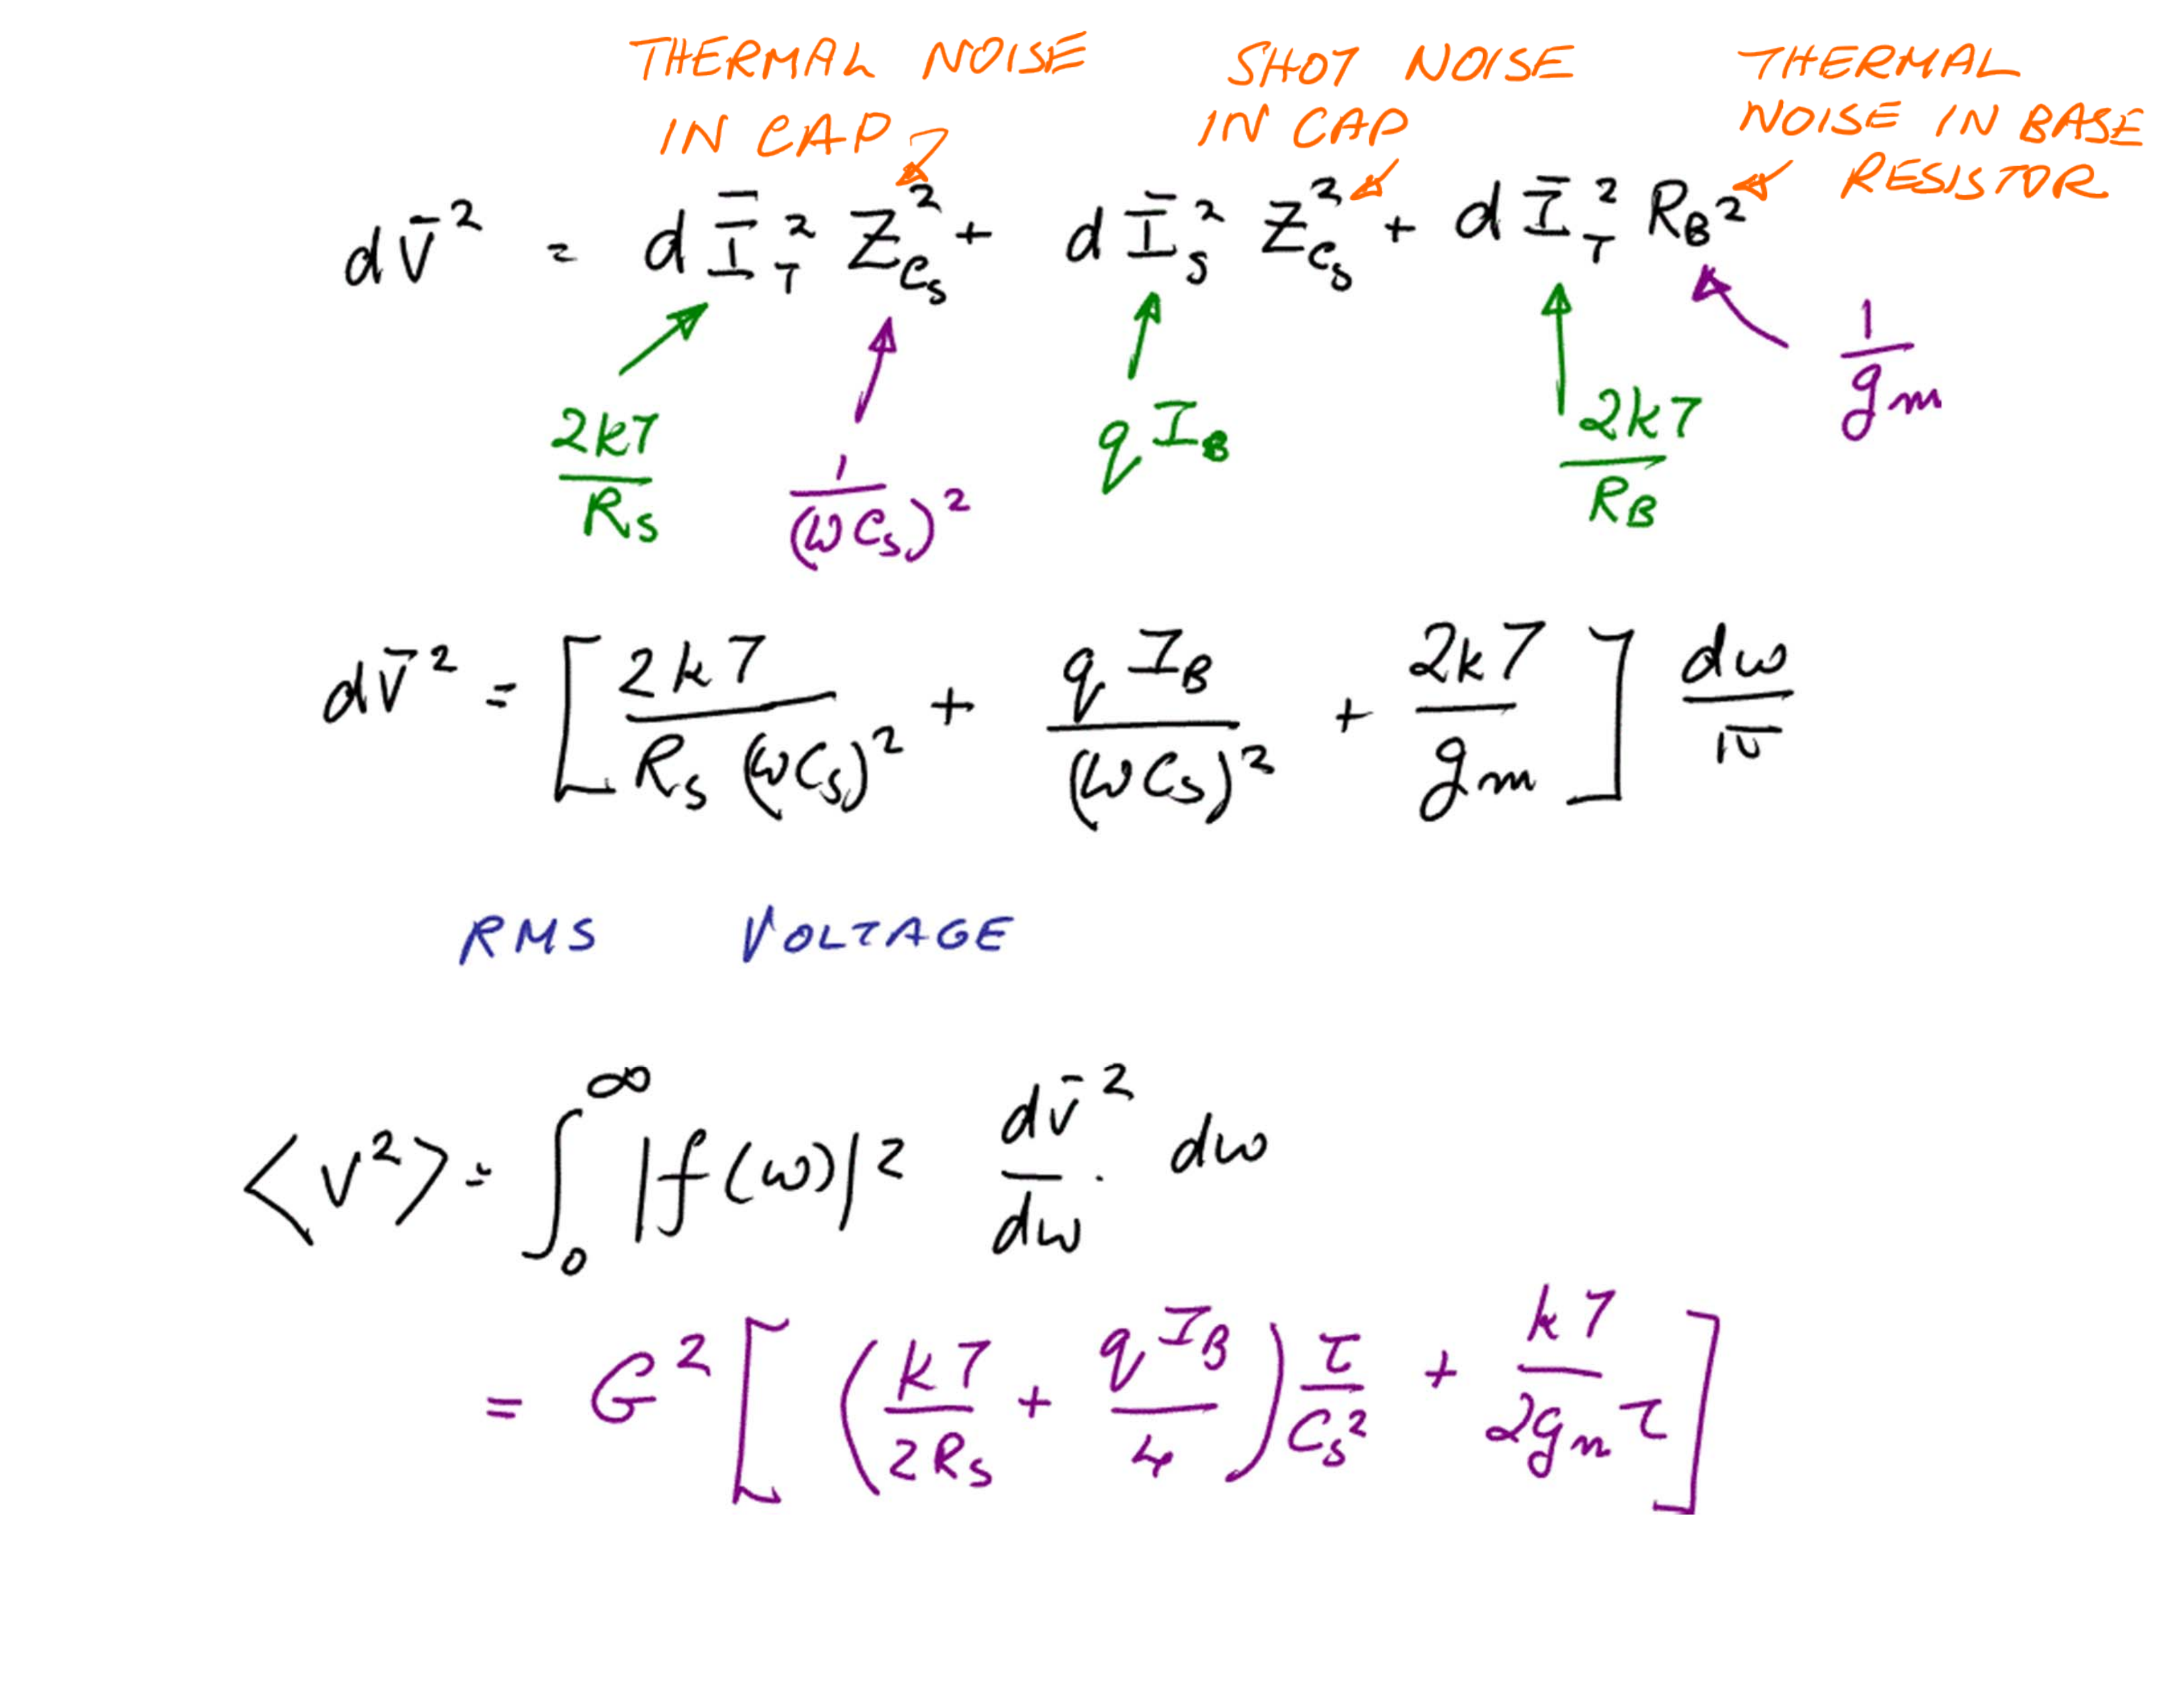 THERMAL NOISE IN CAP
SHOT NOISE IN CAP
THERMAL NOISE IN BASE RESISTOR
d V̄² = d Ī_T² Z_{Cs}² + d Ī_s² Z_{Cs}² + d Ī_T² R_B²
2kT / R_s
1 / (ωC_s)²
q I_B
2kT / R_B
1 / g_m
d V̄² = [ 2kT / R_s (ωC_s)² + q I_B / (ωC_s)² + 2kT / g_m ] dω / π
RMS VOLTAGE
<V²> = ∫₀^∞ |f(ω)|² dv̄² / dω . dω
= G² [ ( kT / 2R_s + q I_B / 4 ) τ / C_s² + kT / 2g_m τ ]